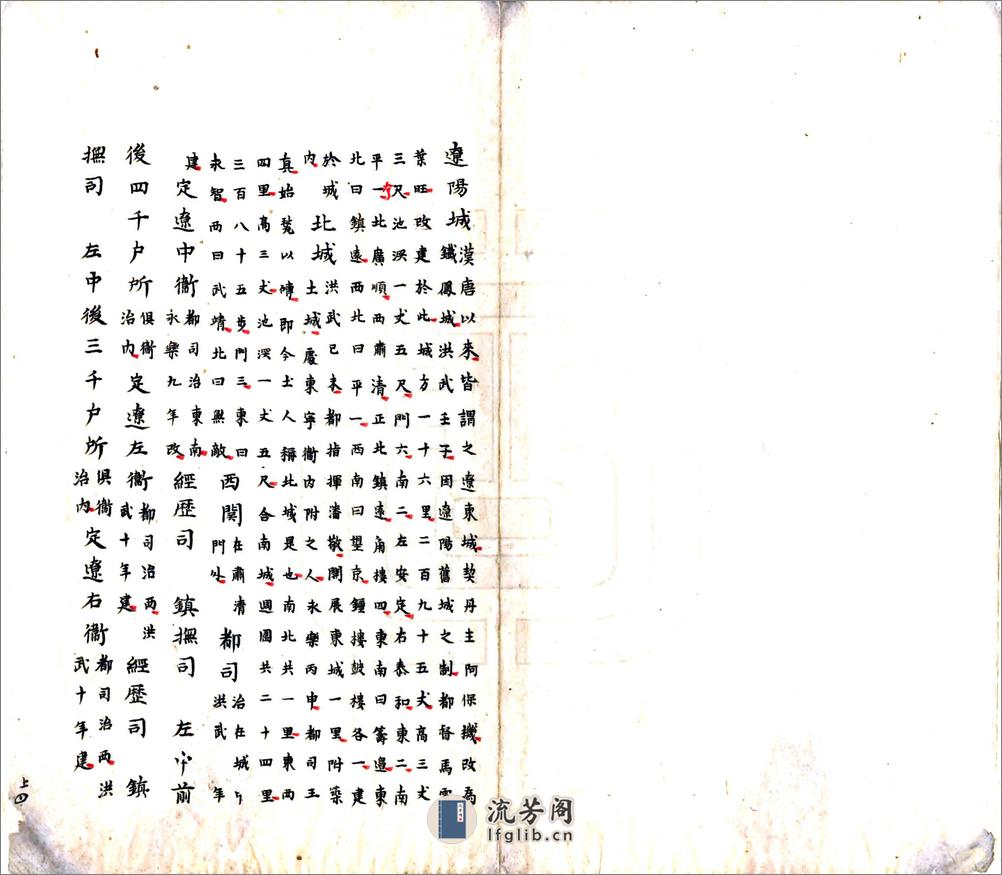 遼陽城漠唐以來皆謂之遼東城契丹主阿保機改爲
鐵鳳城洪武壬子因遼陽舊城之制都督馬雲
葉旺改建於此城方一十六里二百九十五丈高三丈
三尺池深一丈五尺門六南二左安定右泰和東二南
平一北廣順西肅清正北鎮遠角樓四東南曰籌邊東
北曰鎮遠西北曰平一西南曰望京鍾樓皷樓各一建
於城
內
北城洪武已未都指揮潘敬開展東城一里附築
土城處東寧衞內附之人永樂丙申都司王
真始甃以磚即今土人稱北城是也南北共一里東西
四里高三丈池深一丈五尺合南城週圍共二十四里
三百八十五步門三東曰
永智西曰武靖北曰無敵
西関在肅清
門外
都司治在城內
洪武 年
建
定遼中衞都司治東南
永樂九年改
經歷司 鎮撫司 左中前
後四千户所俱衞
治內
定遼左衞都司治西洪
武十年建
經歷司 鎮
撫司 左中後三千户所俱衞
治內
定遼右衞都司治西洪
武十年建
上四
流芳阁
lfglib.cn